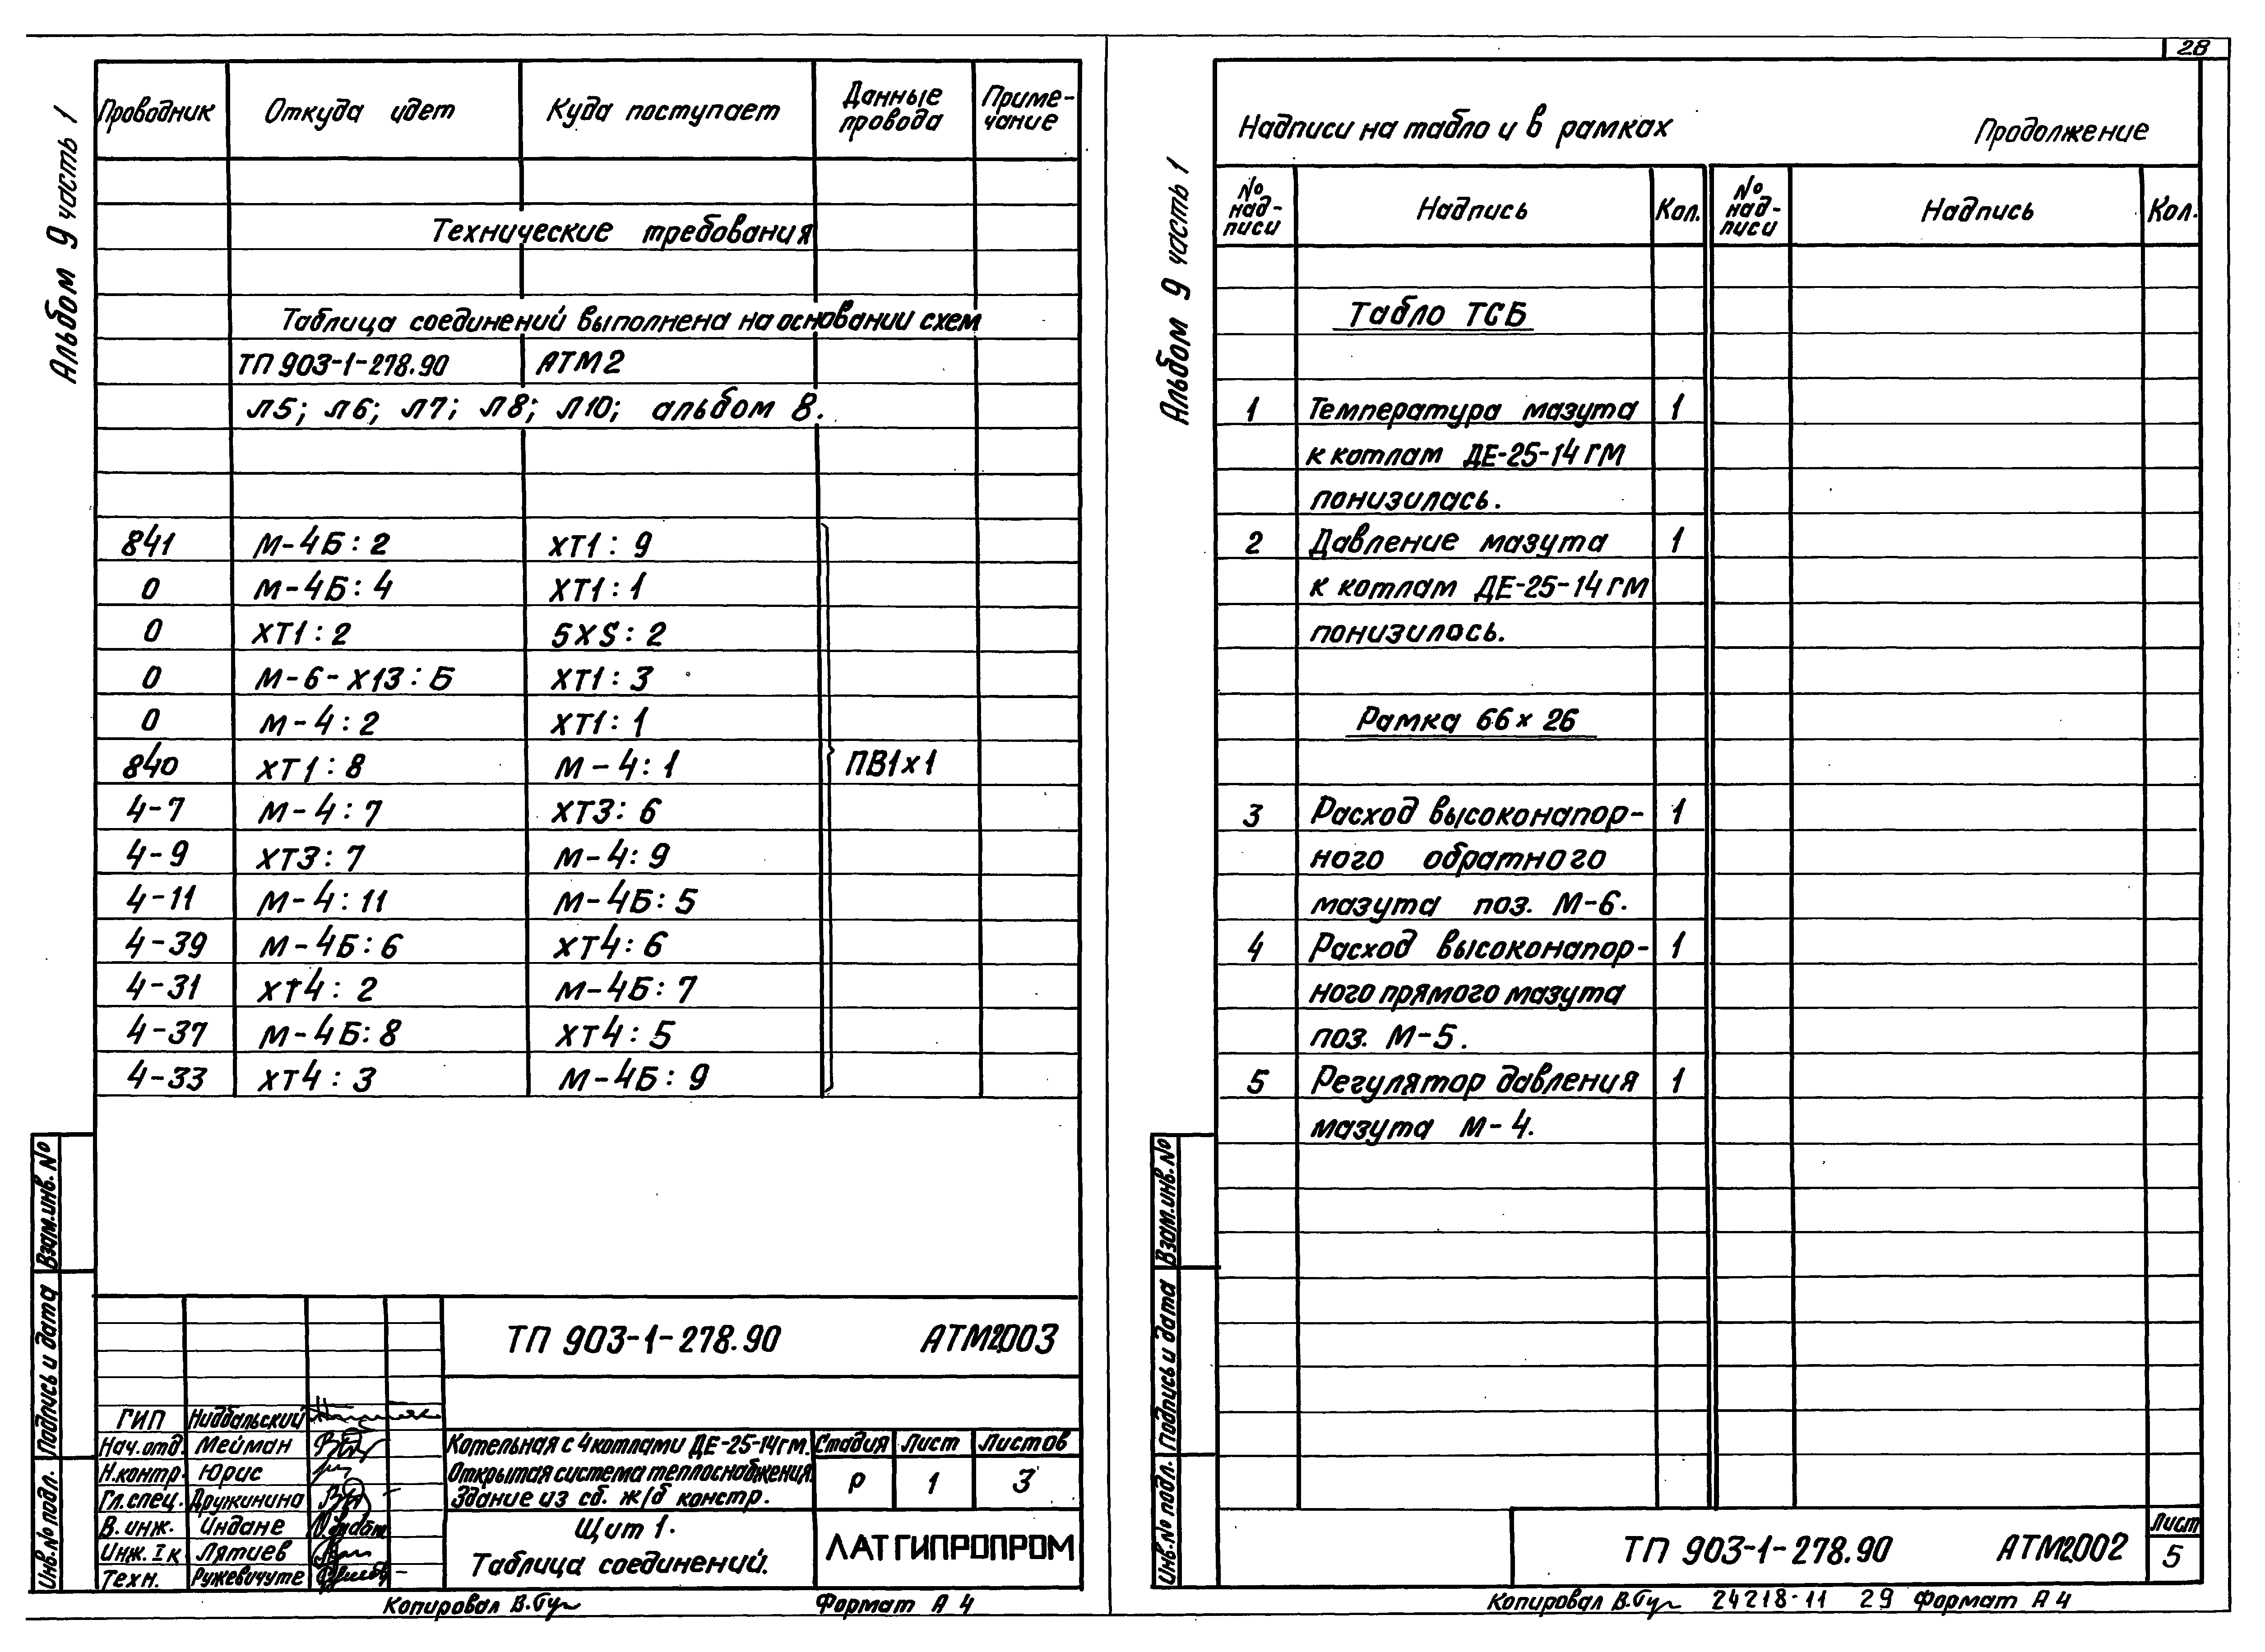 28
Альбом 9 часть 1
Проводник Откуда идет Куда поступает Данные провода Приме-чание
Технические требования
Таблица соединений выполнена на основании схем
ТП 903-1-278.90 АТМ2
Л5; Л6; Л7; Л8; Л10; альбом 8.
841 М-4Б: 2 ХТ1: 9
0 М-4Б: 4 ХТ1: 1
0 ХТ1: 2 5XS: 2
0 М-6-Х13: Б ХТ1: 3
0 М-4: 2 ХТ1: 1
840 ХТ1: 8 М-4: 1 ПВ1х1
4-7 М-4: 7 ХТ3: 6
4-9 ХТ3: 7 М-4: 9
4-11 М-4: 11 М-4Б: 5
4-39 М-4Б: 6 ХТ4: 6
4-31 ХТ4: 2 М-4Б: 7
4-37 М-4Б: 8 ХТ4: 5
4-33 ХТ4: 3 М-4Б: 9
Взам.инв.№
Подпись и дата
Инв.№ подл.
ТП 903-1-278.90 АТМ2.003
ГИП Нидбальский
Нач.отд. Мейман
Н.контр. Юрис
Гл.спец. Дружинина
В. инж. Йндане
Инж. I к Лятиев
Техн. Ружевичуте
Котельная с 4 котлами ДЕ-25-14гм.
Открытая система теплоснабжения.
Здание из сб. ж/б констр.
Стадия Лист Листов
Р 1 3
Щит 1.
Таблица соединений.
ЛАТГИПРОПРОМ
Копировал Формат А4
Альбом 9 часть 1
Надписи на табло и в рамках Продолжение
№ над-писи Надпись Кол. № над-писи Надпись Кол.
Табло ТСБ
1 Температура мазута 1
к котлам ДЕ-25-14 ГМ
понизилась.
2 Давление мазута 1
к котлам ДЕ-25-14 ГМ
понизилось.
Рамка 66х26
3 Расход высоконапор- 1
ного обратного
мазута поз. М-6.
4 Расход высоконапор- 1
ного прямого мазута
поз. М-5.
5 Регулятор давления 1
мазута М-4.
Взам.инв.№
Подпись и дата
Инв.№ подл.
ТП 903-1-278.90 АТМ2.002
Лист
5
Копировал 24218-11 29 Формат А4